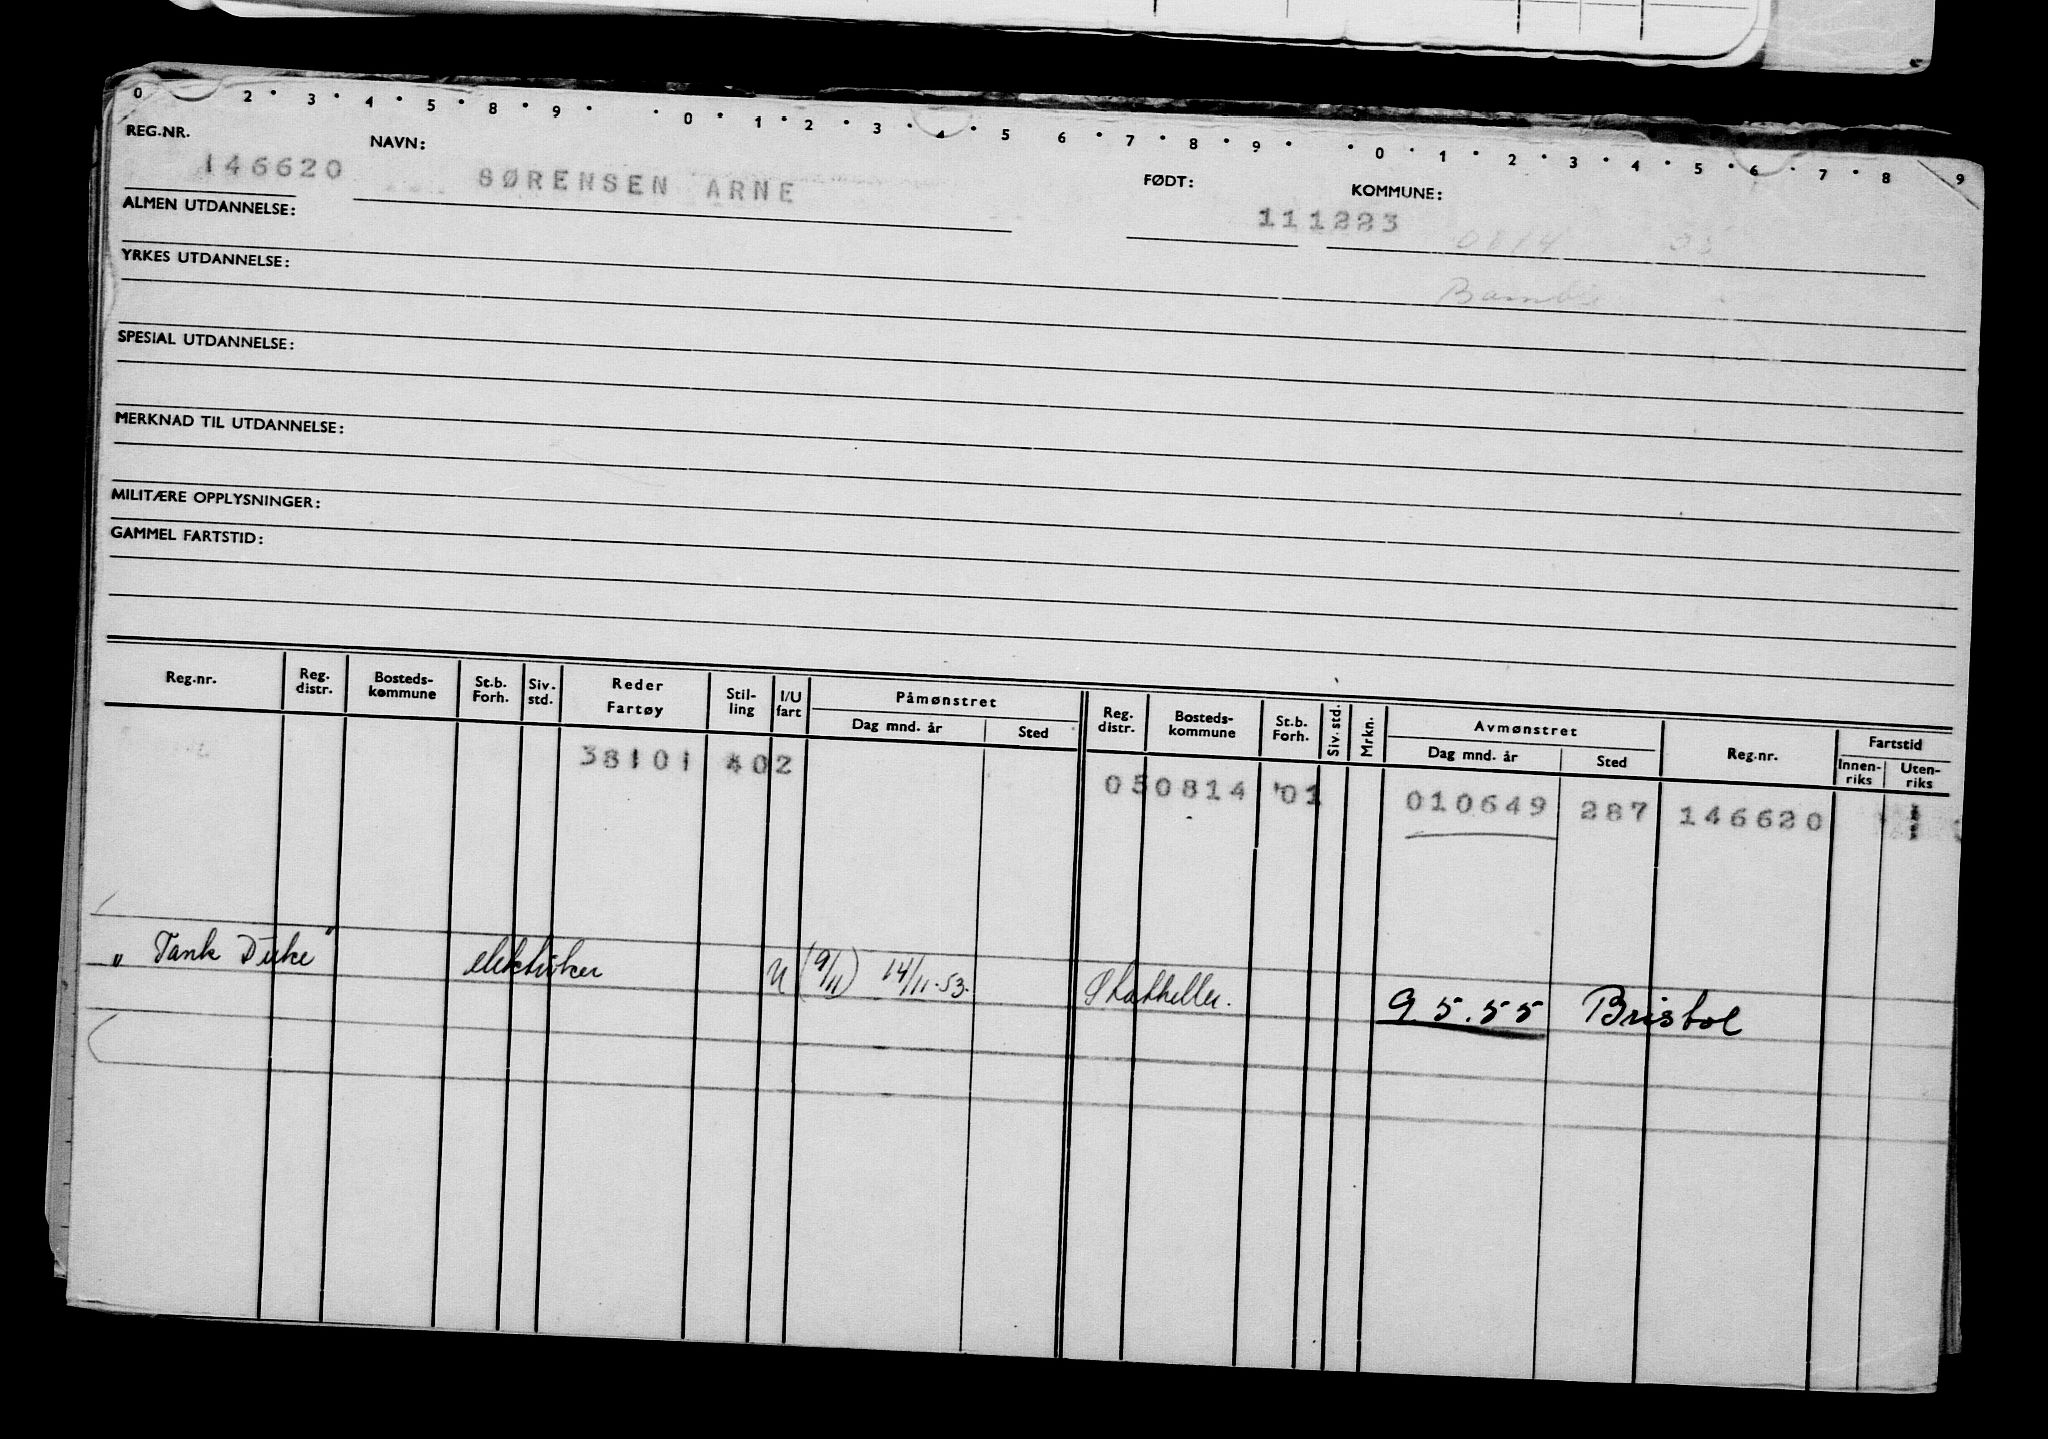 0 2 • 3 • 4 • 5 • 8 • 9 • • 0 • 1 • 2 • 3 • 4 • 5 6 • 7 • 8 • 9 • • 0 • 1 • 2 • 3 • 4 • 5 • 6 • 7 • 8 9
REG.NR. NAVN: FØDT: KOMMUNE:
146620 SØRENSEN ARNE 111223 0814
ALMEN UTDANNELSE:
YRKES UTDANNELSE:
Bamble
SPESIAL UTDANNELSE:
MERKNAD TIL UTDANNELSE:
MILITÆRE OPPLYSNINGER:
GAMMEL FARTSTID:
Reg.nr. Reg. distr. Bosteds- kommune St.b. Forh. Siv. std. Reder Fartøy Stil- ling I/U fart Påmønstret Dag mnd. år Sted Reg. distr. Bosteds- kommune St.b. Forh. Siv. std. Mrkn. Avmønstret Dag mnd. år Sted Reg.nr. Fartstid Innen- riks Uten- riks
38101 402 050814 01 010649 287 146620
"Tank Duke" elektriker U (9/11) 14/11-53. Stathelle. 9.5.55 Bristol